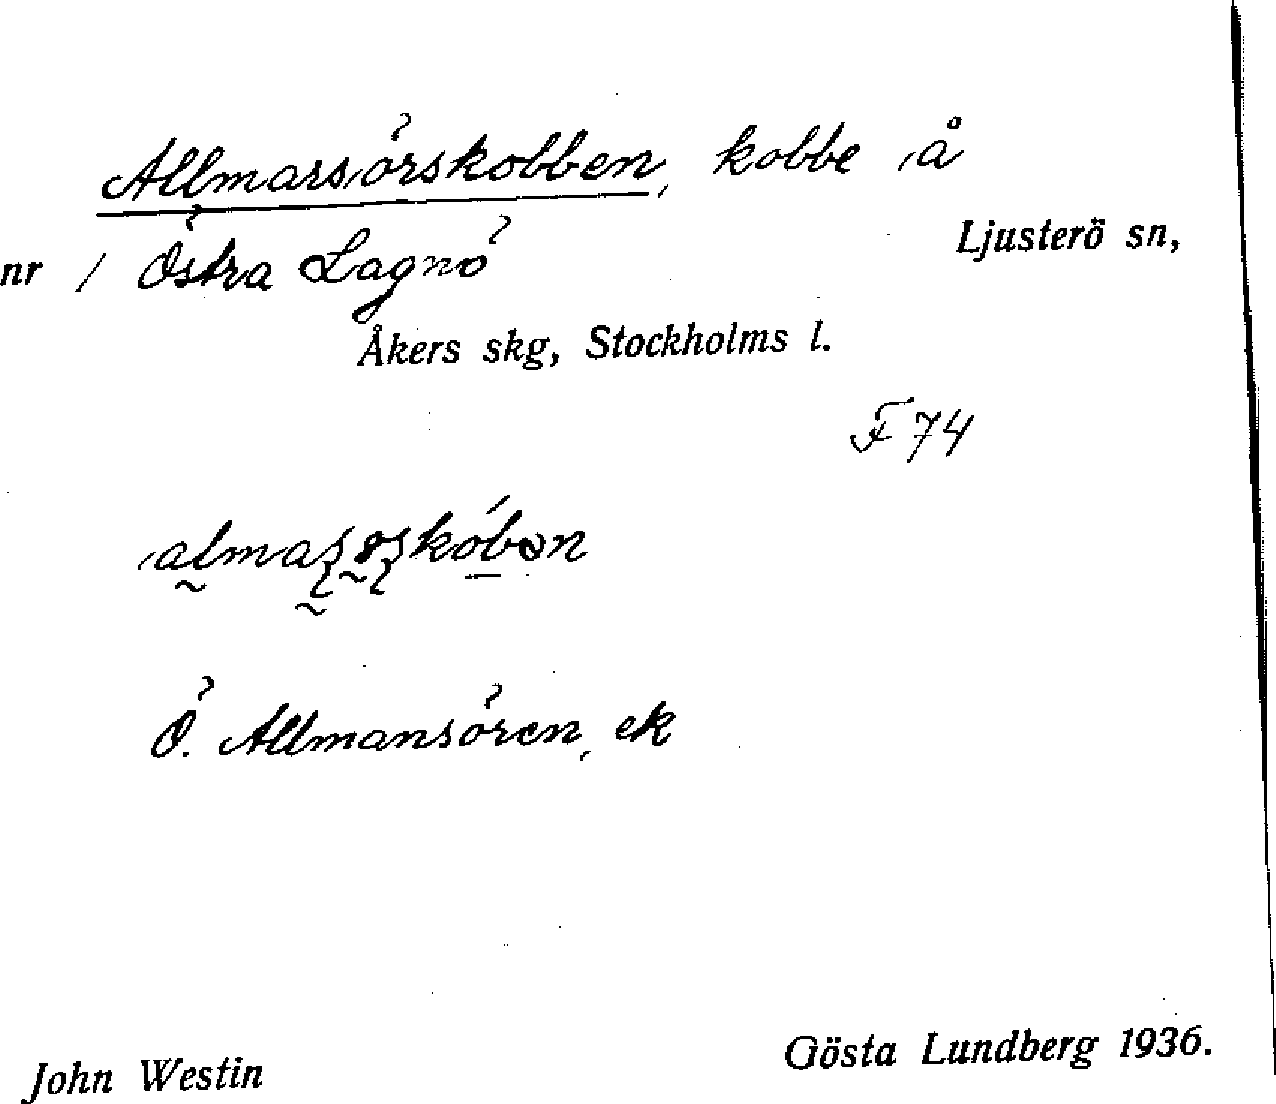 Allmarsörskobben, kobbe å
Ljusterö sn,
nr 1 Östra Lagnö
Åkers skg, Stockholms l.
F 74
Ö. Allmansören, ek
John Westin
Gösta Lundberg 1936.